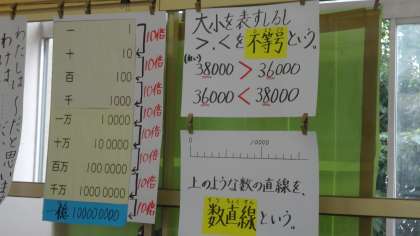 わたしは〜だと思います
わけは
一 1
十 10
百 100
千 1000
一万 10000
十万 100000
百万 1000000
千万 10000000
一億 100000000
10倍
10倍
10倍
10倍
10倍
10倍
10倍
10倍
大小を表すしるし
>、<を不等号という。
38000 > 36000
36000 < 38000
0 10000
上のような数の直線を、
すうちょくせん
数直線という。